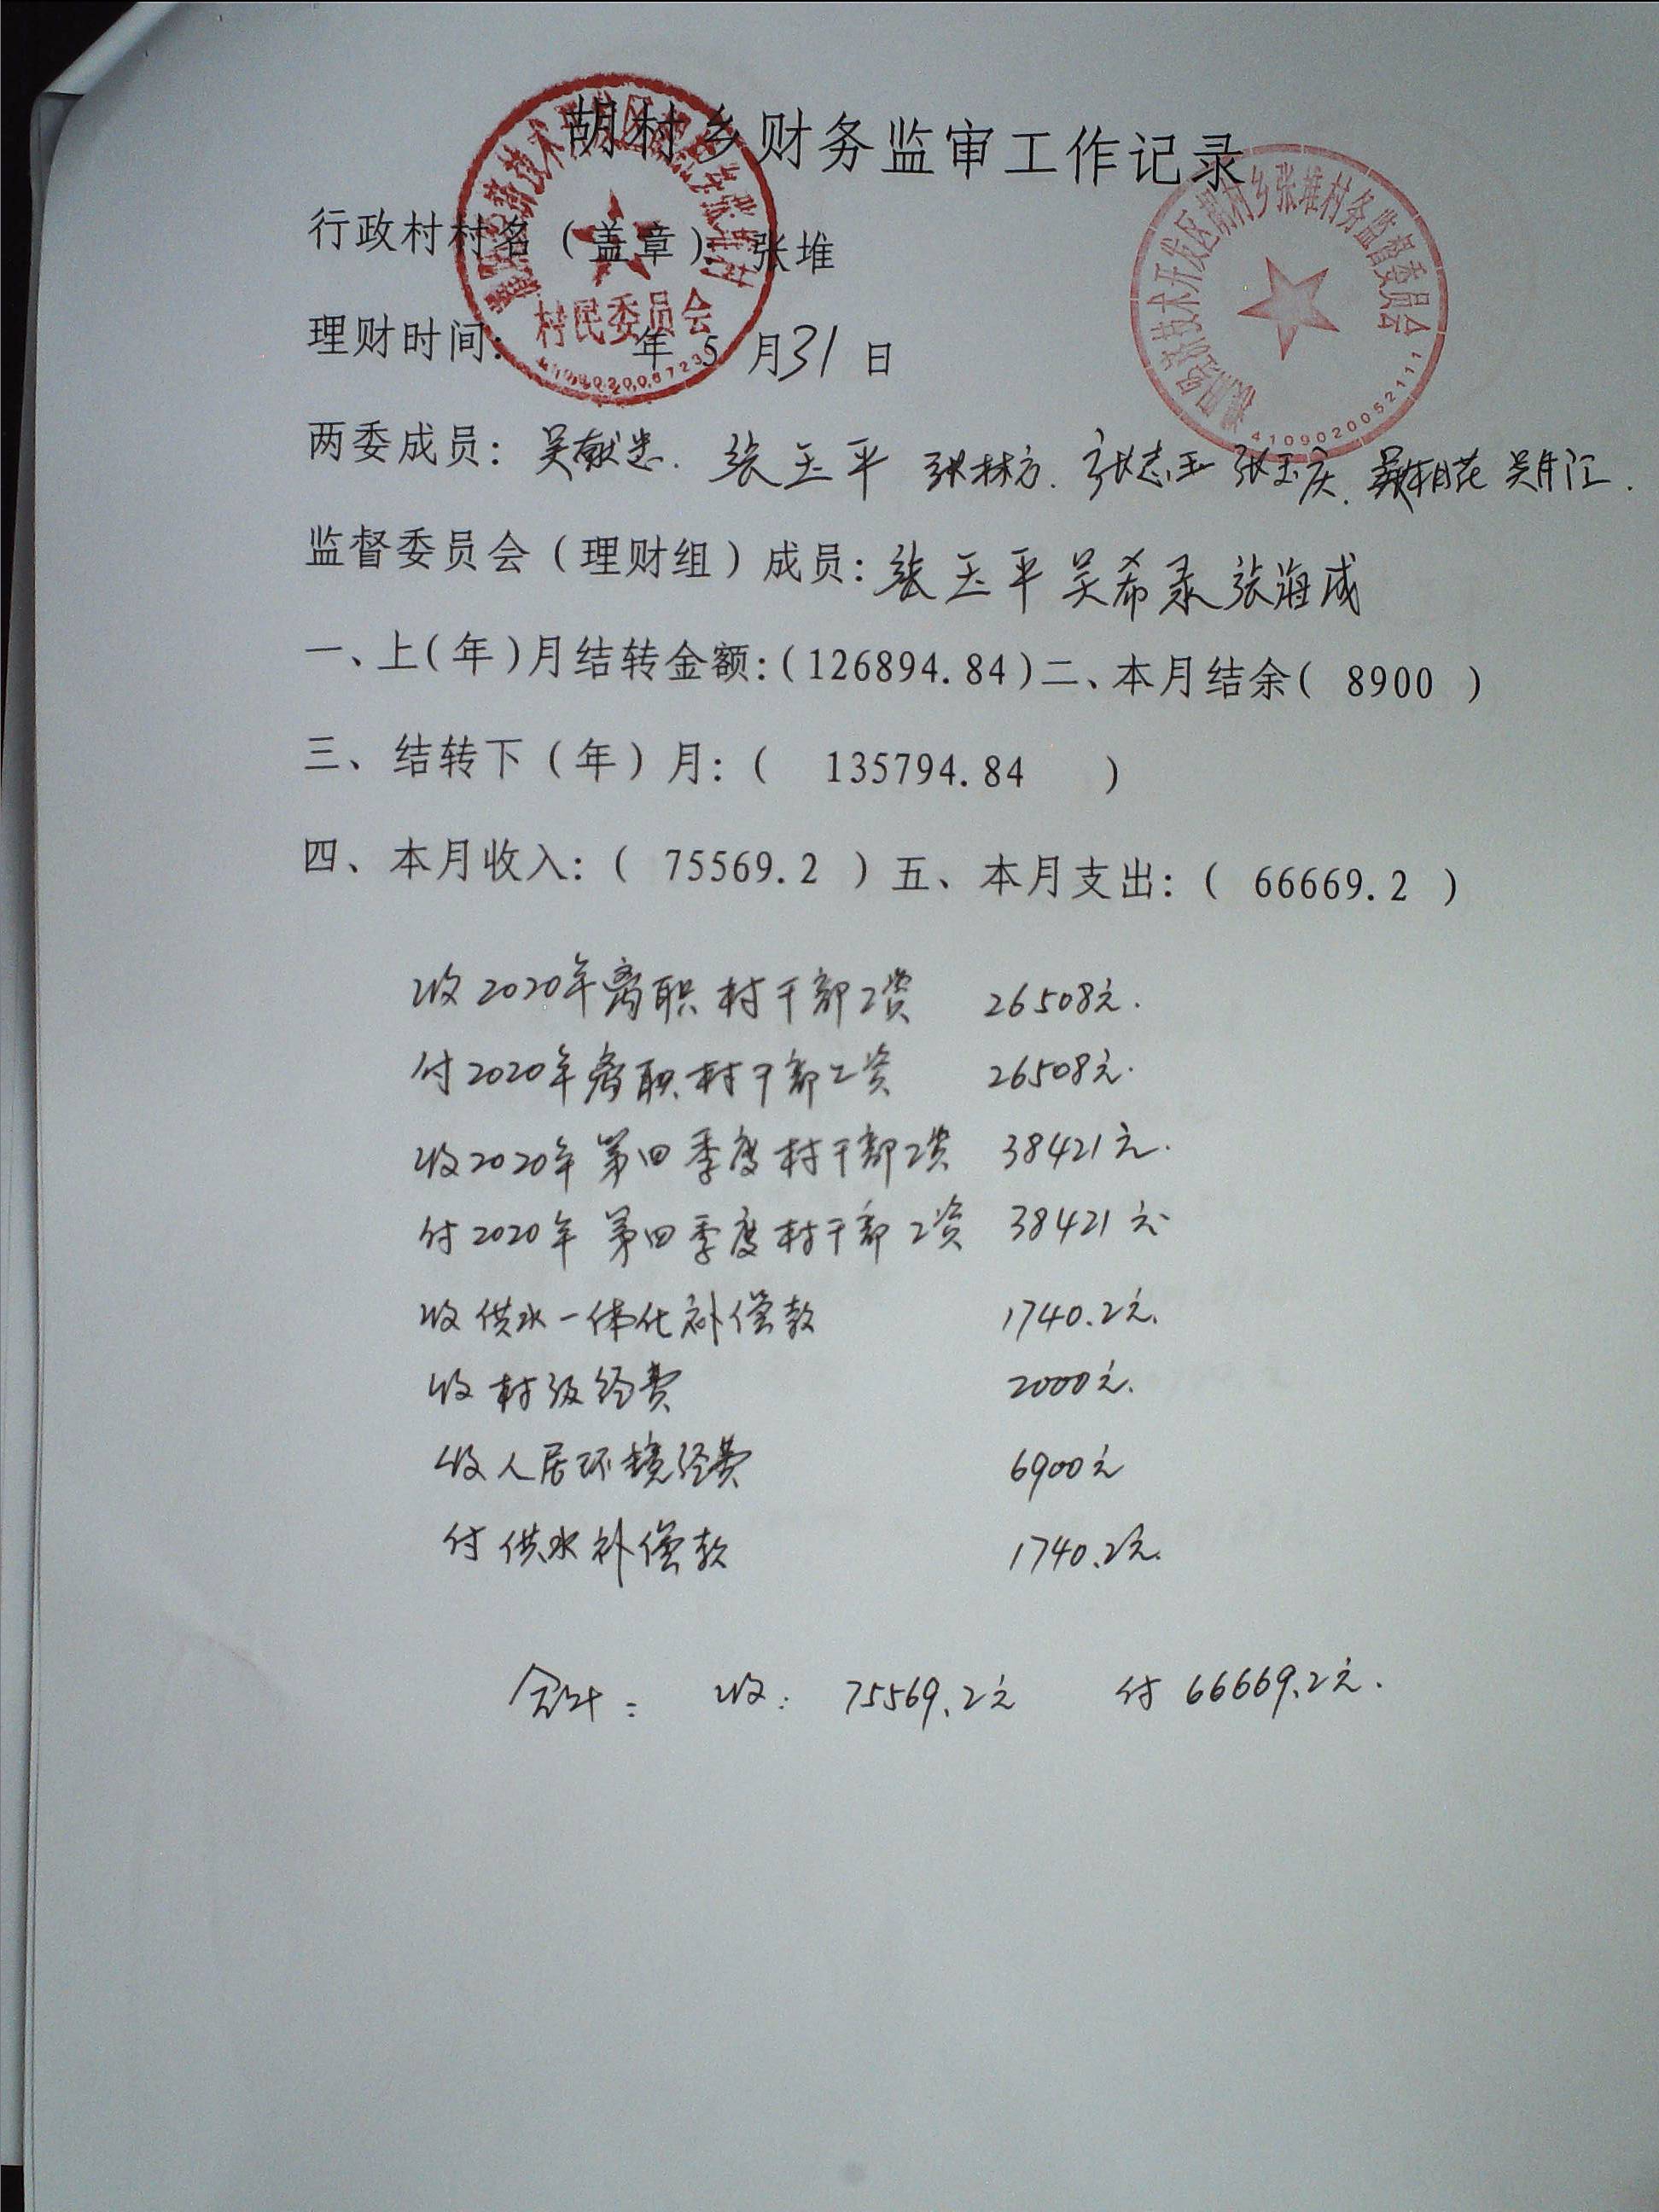 胡村乡财务监审工作记录
行政村村名（盖章）：张堆
理财时间： 年 5 月 31 日
村民委员会
胡村乡张堆村务监督委员会
4109020052111
两委成员：吴献忠. 张玉平 张林方. 张志玉 张玉庆.
监督委员会（理财组）成员：张玉平 吴希录 张海成
一、上(年)月结转金额:(126894.84)二、本月结余( 8900 )
三、结转下（年）月:( 135794.84 )
四、本月收入:( 75569.2 )五、本月支出:( 66669.2 )
收2020年离职村干部工资 26508元.
付2020年离职村干部工资 26508元.
收2020年第四季度村干部工资 38421元.
付2020年第四季度村干部工资 38421元
收供水一体化补偿款 1740.2元.
收村级经费 2000元.
收人居环境经费 6900元
付供水补偿款 1740.2元.
合计: 收: 75569.2元 付 66669.2元.